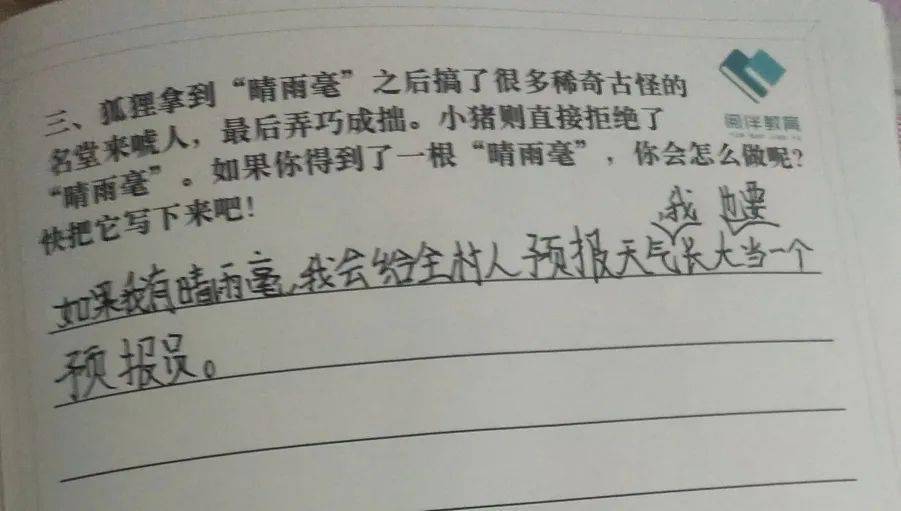 三、狐狸拿到“晴雨毫”之后搞了很多稀奇古怪的
名堂来唬人，最后弄巧成拙。小猪则直接拒绝了
“晴雨毫”。如果你得到了一根“晴雨毫”，你会怎么做呢？
快把它写下来吧！
阅伴教育
，我 也要
如果我有晴雨毫，我会给全村人预报天气长大当一个
预报员。